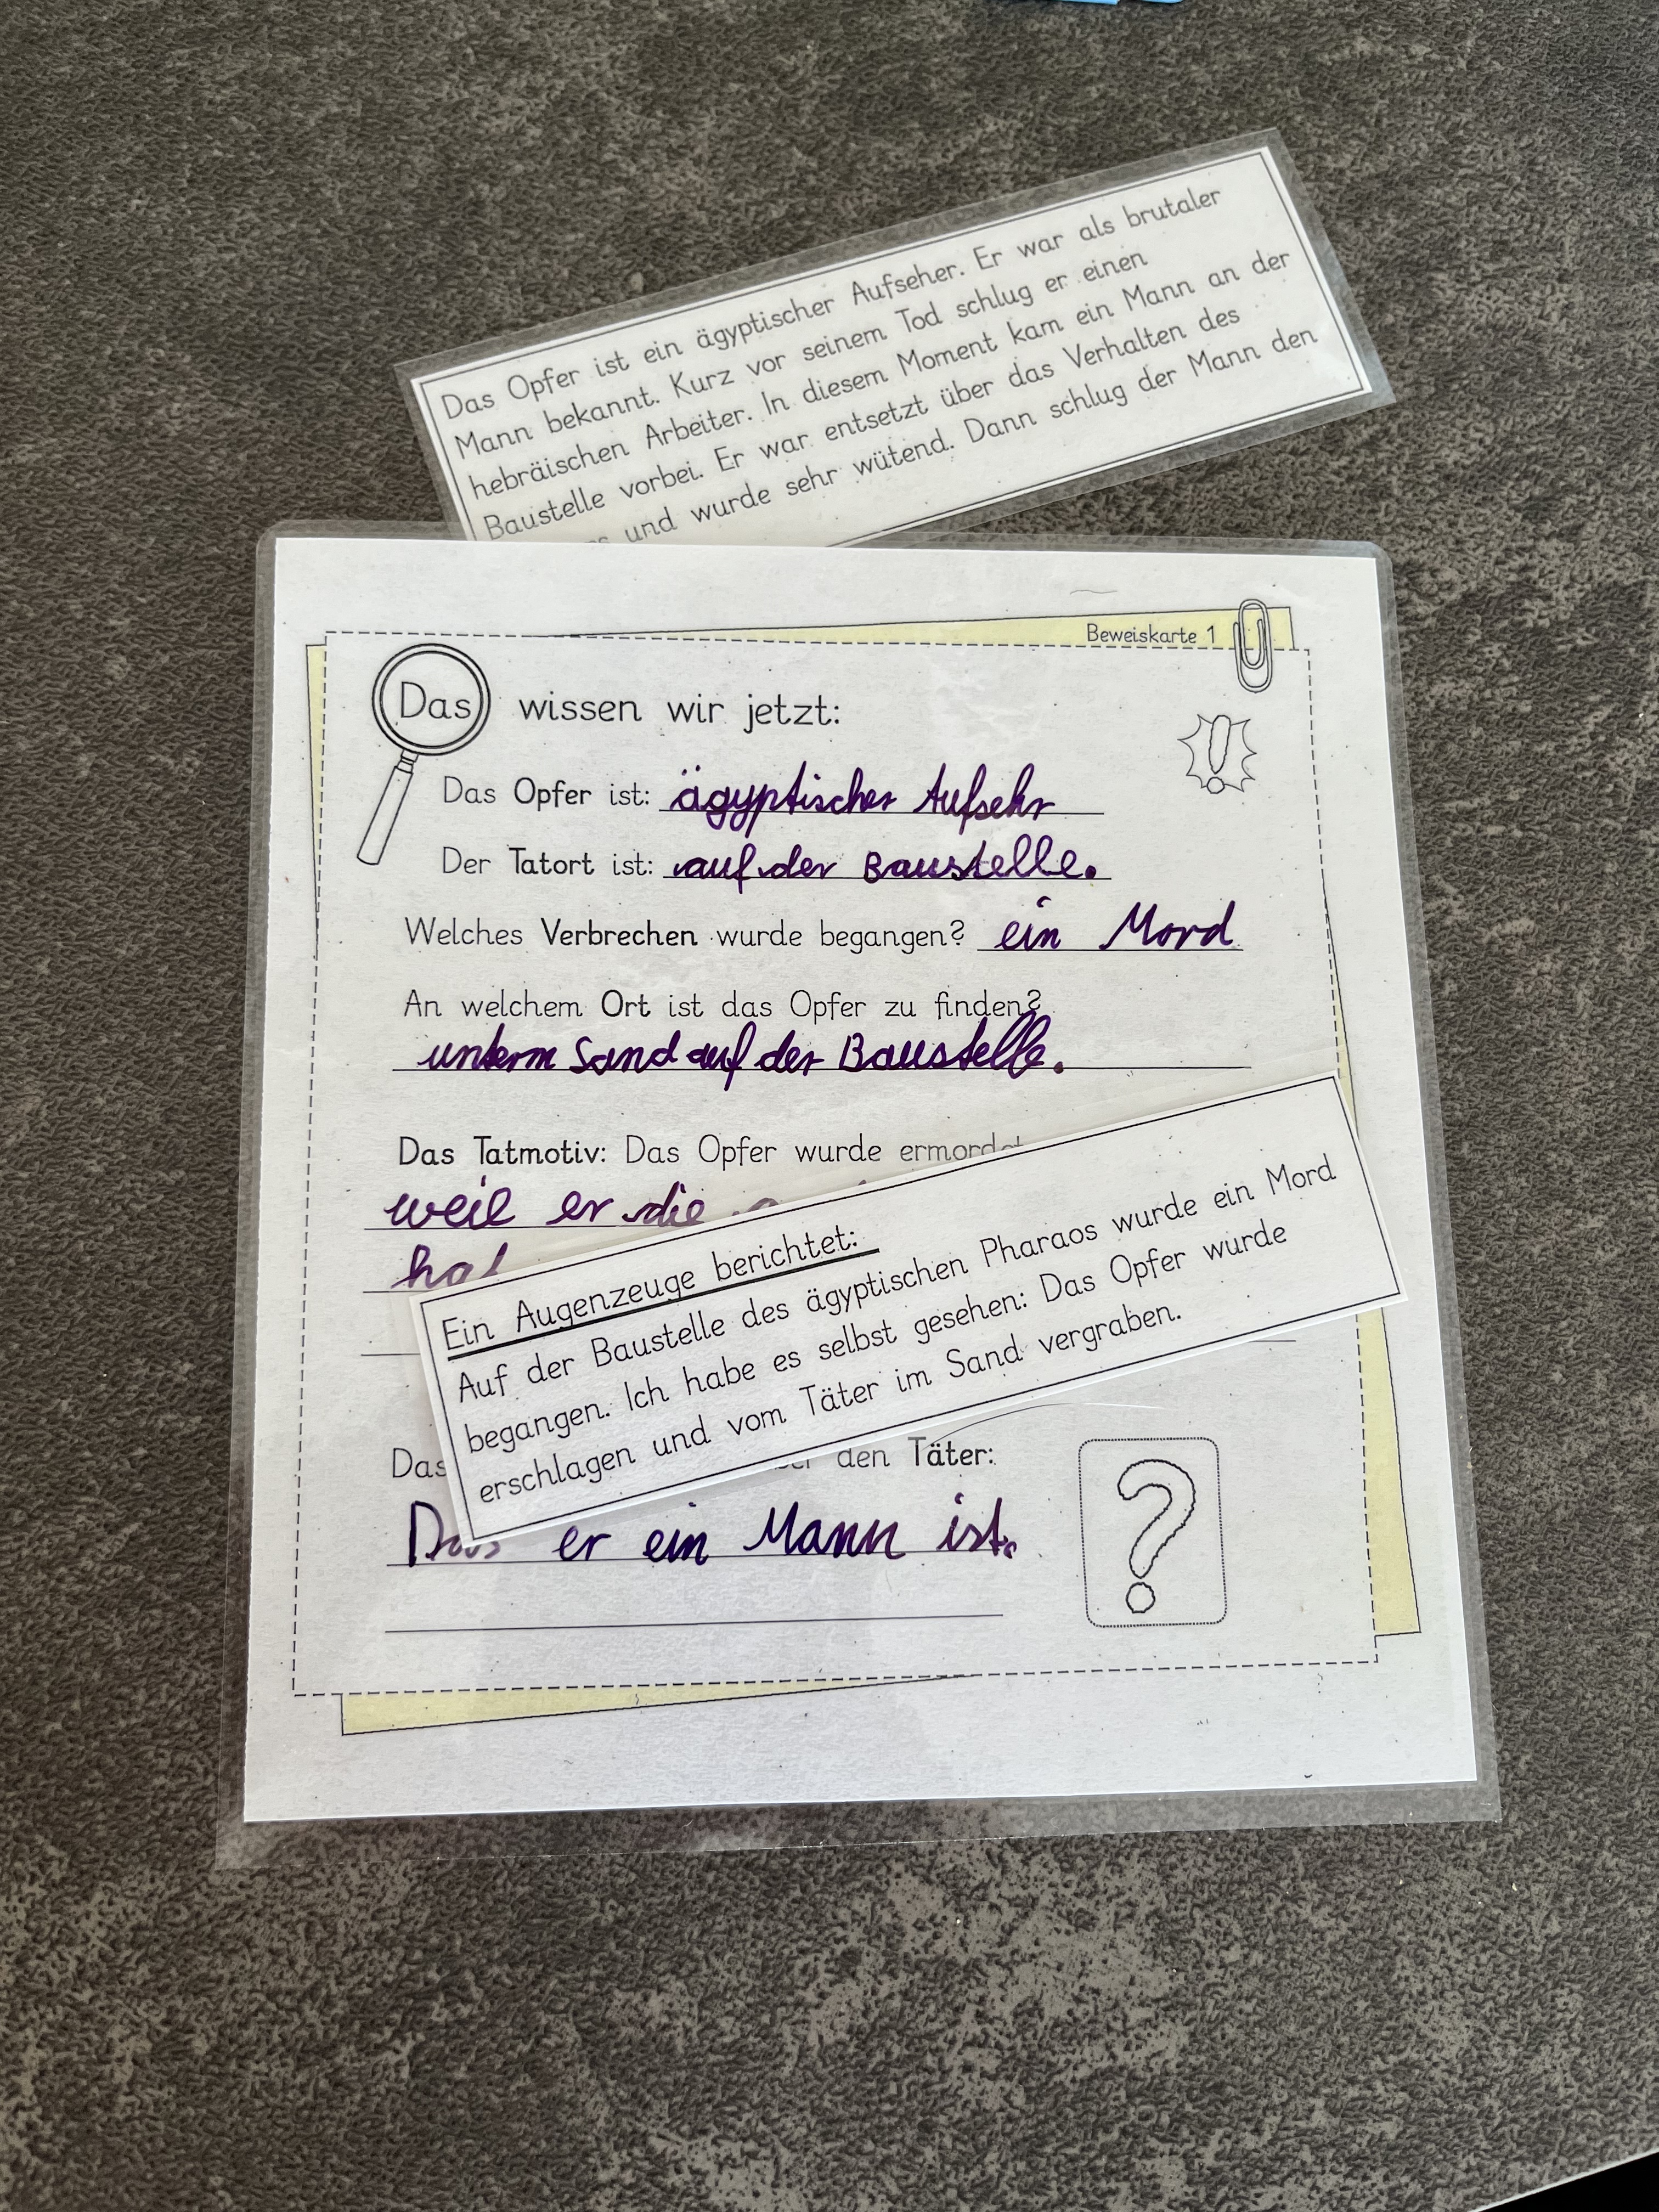 Das Opfer ist ein ägyptischer Aufseher. Er war als brutaler
Mann bekannt. Kurz vor seinem Tod schlug er einen
hebräischen Arbeiter. In diesem Moment kam ein Mann an der
Baustelle vorbei. Er war entsetzt über das Verhalten des
und wurde sehr wütend. Dann schlug der Mann den
Beweiskarte 1
Das wissen wir jetzt:
Das Opfer ist: ägyptischer Aufsehr
Der Tatort ist: auf der Baustelle.
Welches Verbrechen wurde begangen? ein Mord
An welchem Ort ist das Opfer zu finden?
unterm Sand auf der Baustelle.
Das Tatmotiv: Das Opfer wurde
weil er die
Ein Augenzeuge berichtet:
Auf der Baustelle des ägyptischen Pharaos wurde ein Mord
begangen. Ich habe es selbst gesehen: Das Opfer wurde
erschlagen und vom Täter im Sand vergraben.
Das den Täter:
er ein Mann ist.